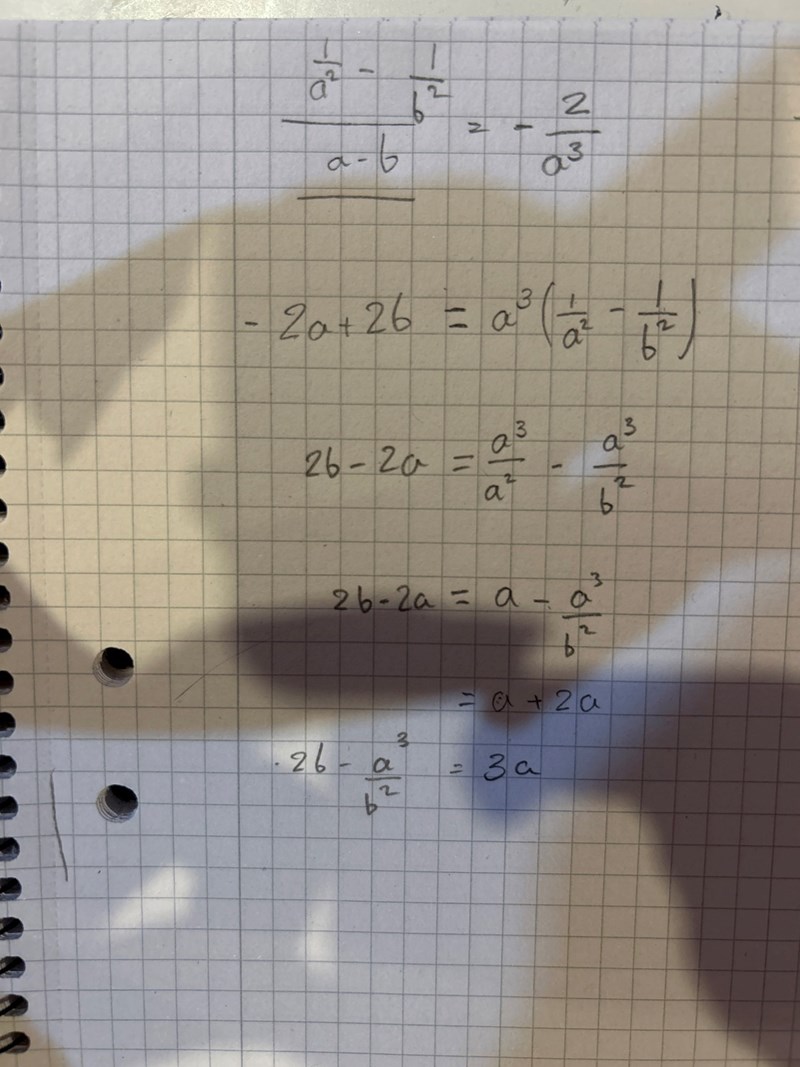 (1/a² - 1/b²)/(a-b) = - 2/a³
- 2a+2b = a³(1/a² - 1/b²)
2b - 2a = a³/a² - a³/b²
2b-2a = a - a³/b²
= a + 2a
·2b - a³/b² = 3a